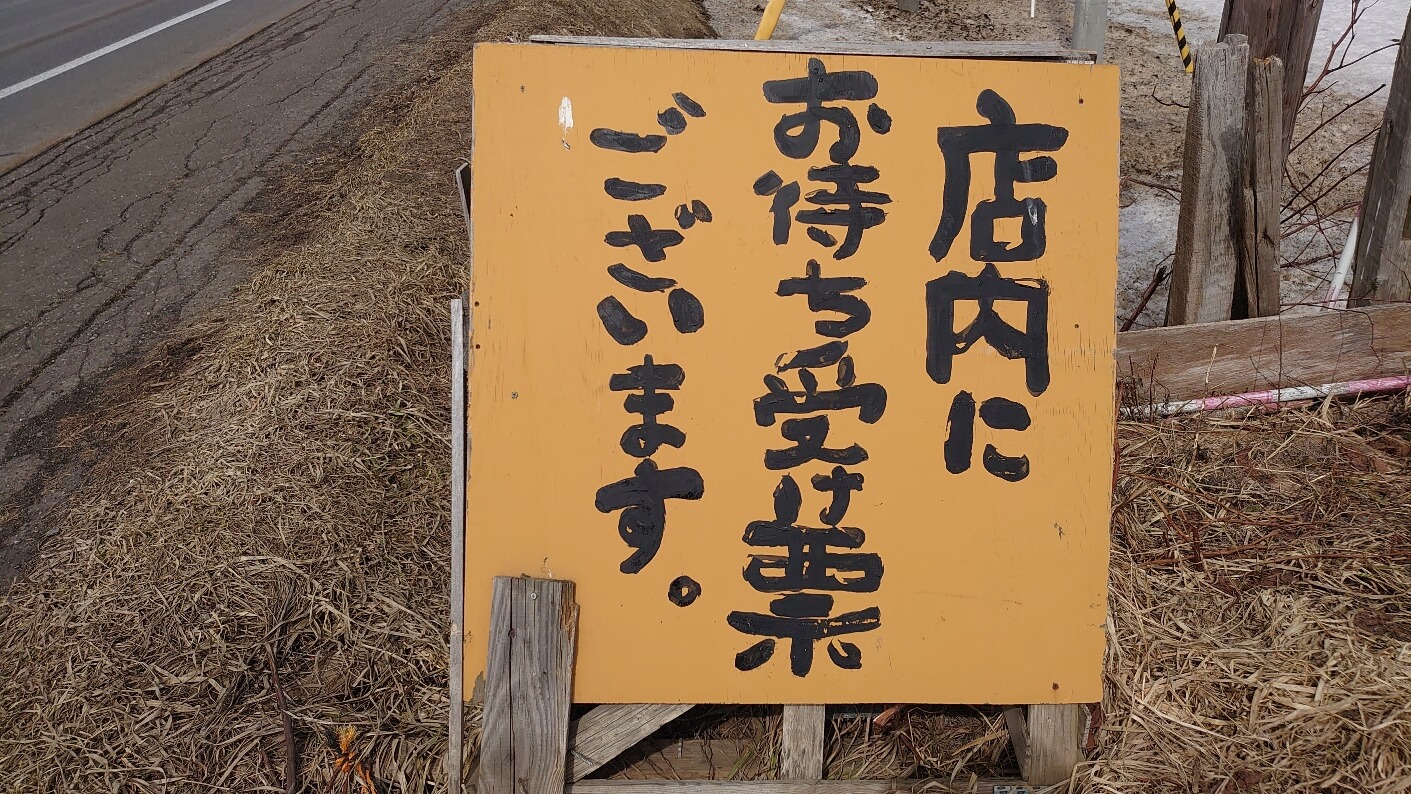 店内に
お待ち受け票
ございます。